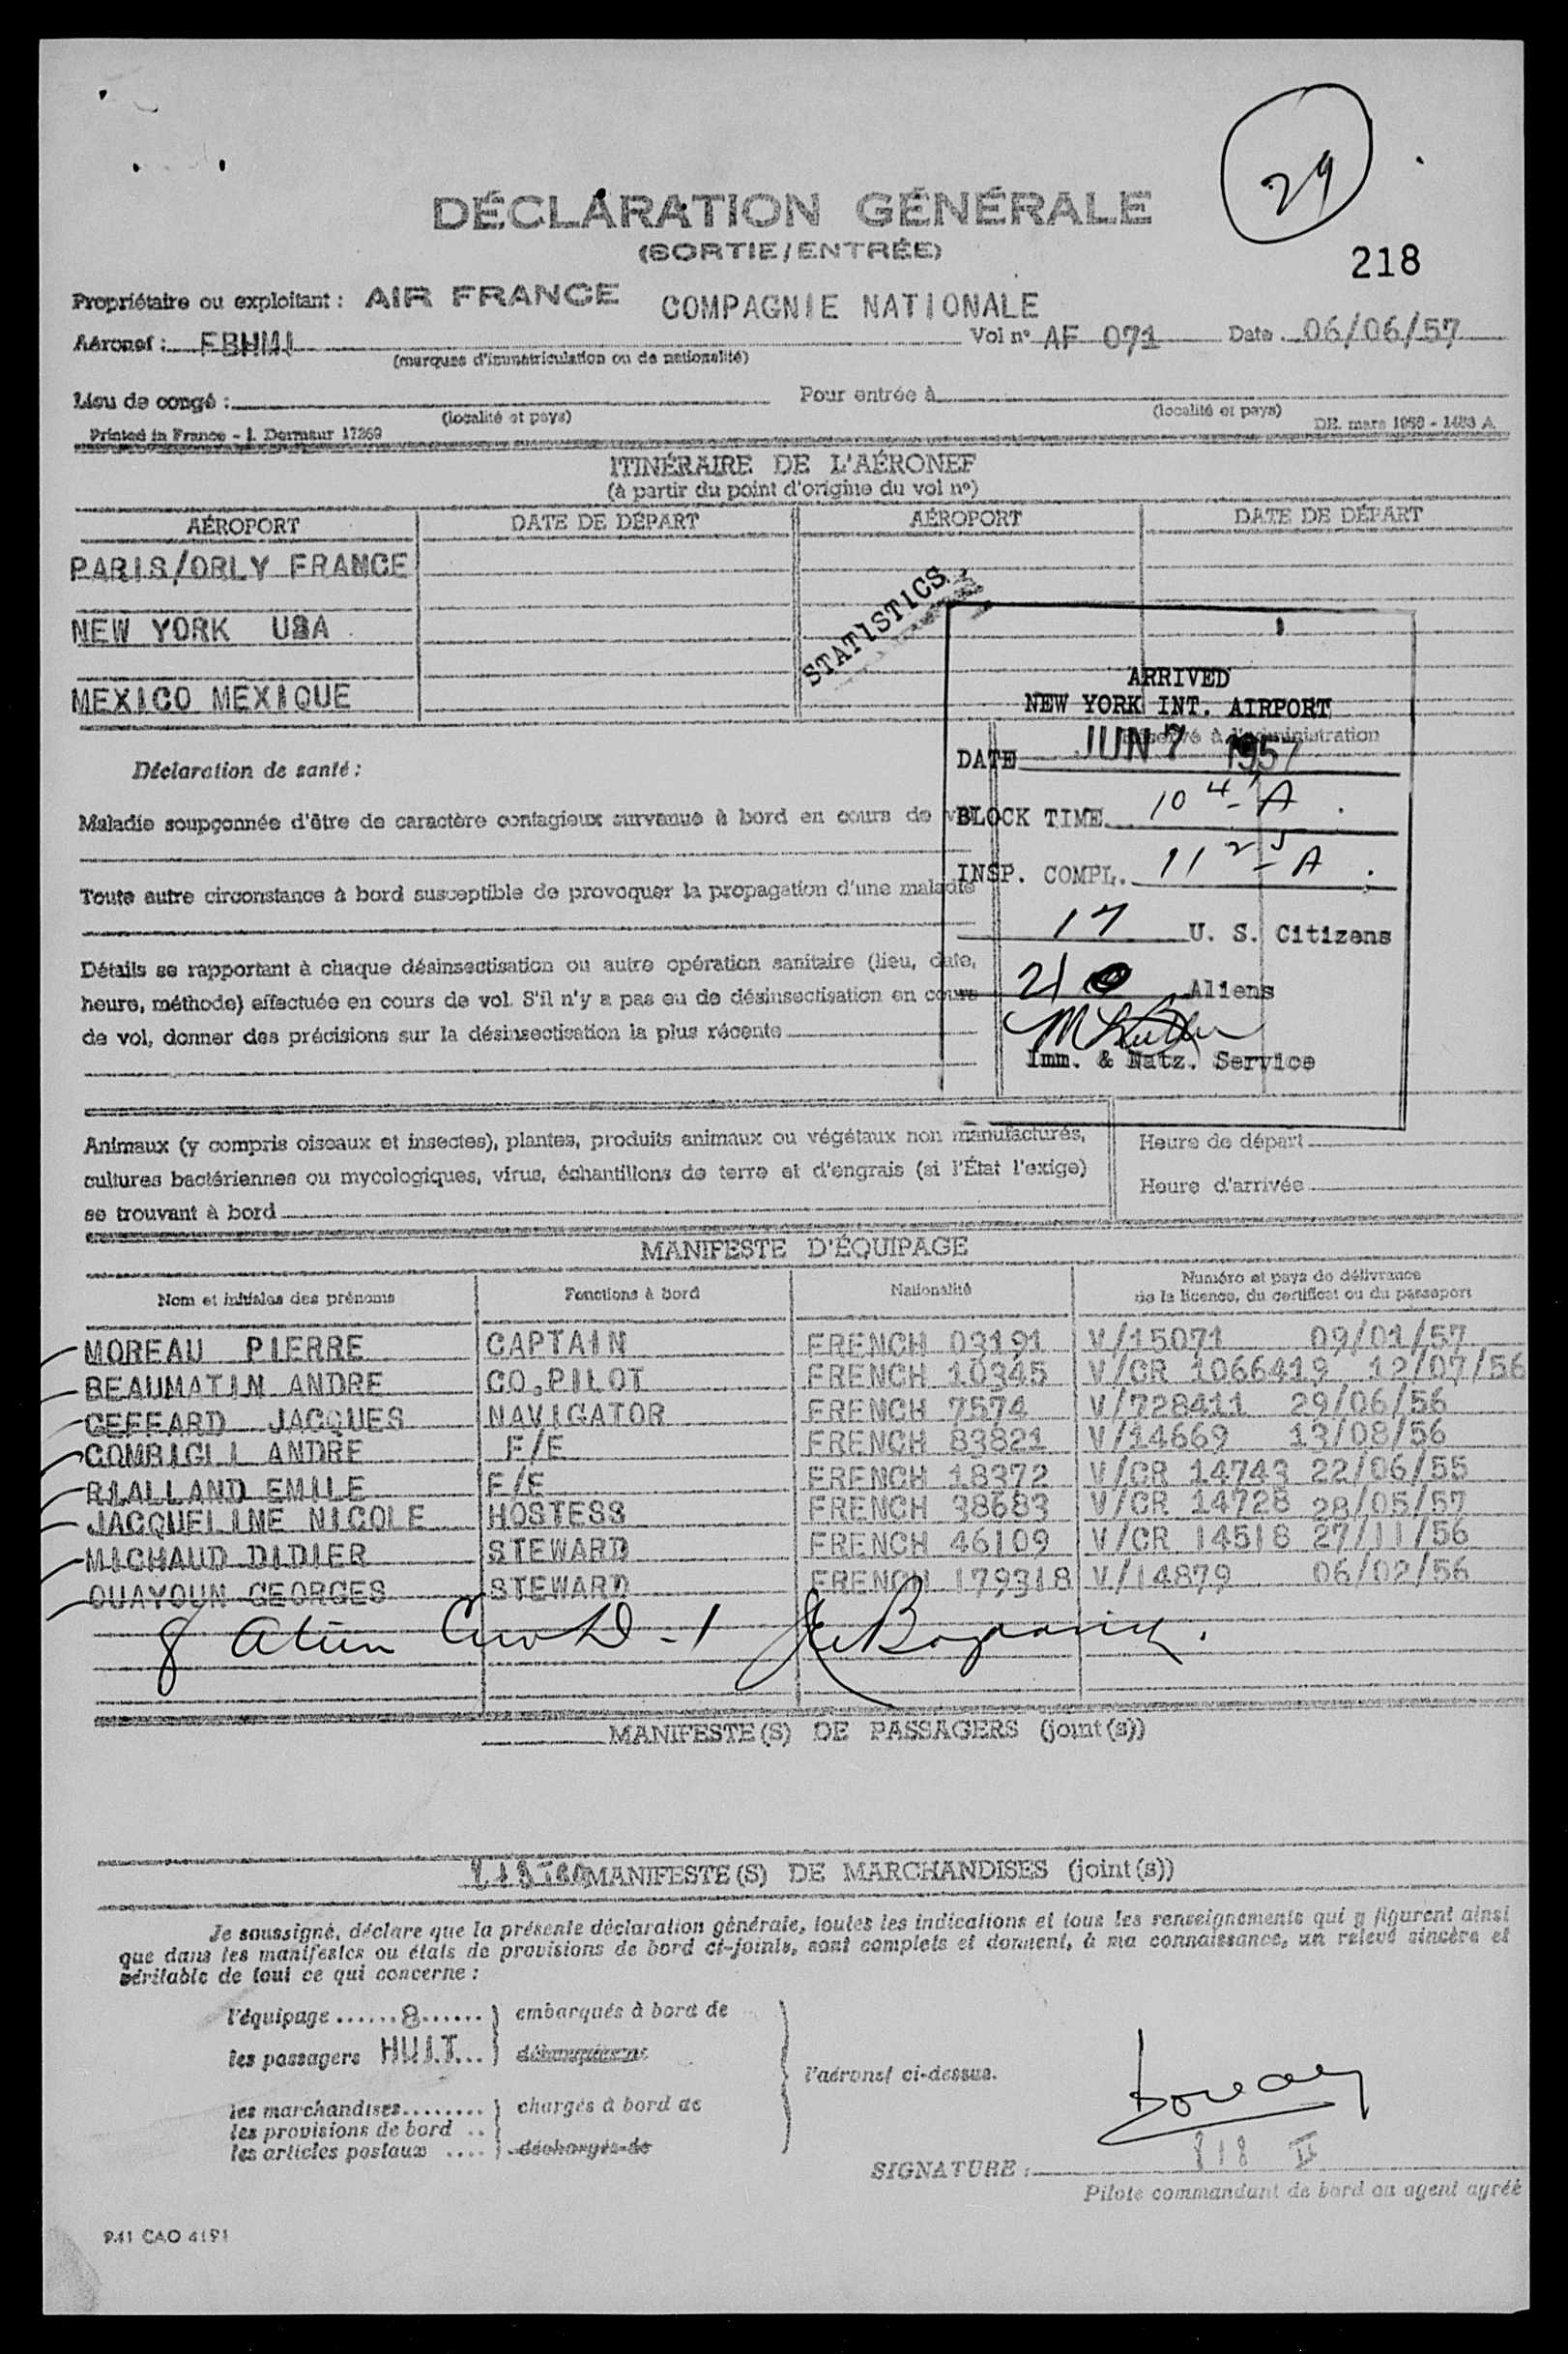 29
DÉCLARATION GÉNÉRALE
(SORTIE/ENTRÉE)
218
Propriétaire ou exploitant : AIR FRANCE COMPAGNIE NATIONALE
Aéronef : FBHMI Vol n° AF 071 Date 06/06/57
(marques d'immatriculation ou de nationalité)
Lieu de congé : Pour entrée à
(localité et pays) (localité et pays)
Printed in France - I. Dermaur 17269 DE. mars 1953 - 1483 A
ITINÉRAIRE DE L'AÉRONEF
(à partir du point d'origine du vol n°)
AÉROPORT DATE DE DÉPART AÉROPORT DATE DE DÉPART
PARIS/ORLY FRANCE
NEW YORK USA
MEXICO MEXIQUE
STATISTICS
ARRIVED
NEW YORK INT. AIRPORT
Réservé à l'administration
DATE JUN 7 1957
BLOCK TIME 10 4- A
INSP. COMPL. 11 25 A
17 U. S. Citizens
21 Aliens
Imm. & Natz. Service
Déclaration de santé :
Maladie soupçonnée d'être de caractère contagieux survenue à bord en cours de vol
Toute autre circonstance à bord susceptible de provoquer la propagation d'une maladie
Détails se rapportant à chaque désinsectisation ou autre opération sanitaire (lieu, date,
heure, méthode) effectuée en cours de vol. S'il n'y a pas eu de désinsectisation en cours
de vol, donner des précisions sur la désinsectisation la plus récente
Animaux (y compris oiseaux et insectes), plantes, produits animaux ou végétaux non manufacturés,
cultures bactériennes ou mycologiques, virus, échantillons de terre et d'engrais (si l'État l'exige)
se trouvant à bord
Heure de départ
Heure d'arrivée
MANIFESTE D'ÉQUIPAGE
Nom et initiales des prénoms Fonctions à bord Nationalité Numéro et pays de délivrance
de la licence, du certificat ou du passeport
MOREAU PIERRE CAPTAIN FRENCH 03191 V/15071 09/01/57
BEAUMATIN ANDRE CO.PILOT FRENCH 10345 V/CR 1066419 12/07/56
GEFFARD JACQUES NAVIGATOR FRENCH 7574 V/728411 29/06/56
COMBIGLI ANDRE F/E FRENCH 83821 V/14669 13/08/56
RIALLAND EMILE F/E FRENCH 18372 V/CR 14743 22/06/55
JACQUELINE NICOLE HOSTESS FRENCH 38683 V/CR 14728 28/05/57
MICHAUD DIDIER STEWARD FRENCH 46109 V/CR 14518 27/11/56
OUAYOUN GEORGES STEWARD FRENCH 179318 V/14879 06/02/56
8 Alien Crew D-1
MANIFESTE(S) DE PASSAGERS (joint(s))
MANIFESTE(S) DE MARCHANDISES (joint(s))
Je soussigné, déclare que la présente déclaration générale, toutes les indications et tous les renseignements qui y figurent ainsi
que dans les manifestes ou états de provisions de bord ci-joints, sont complets et donnent, à ma connaissance, un relevé sincère et
véritable de tout ce qui concerne :
l'équipage ......8...... embarqués à bord de
les passagers HUIT... débarqués de
l'aéronef ci-dessus.
les marchandises........ chargés à bord de
les provisions de bord ..
les articles postaux .... déchargés de
SIGNATURE :
Pilote commandant de bord ou agent agréé
P.41 CAO 4191